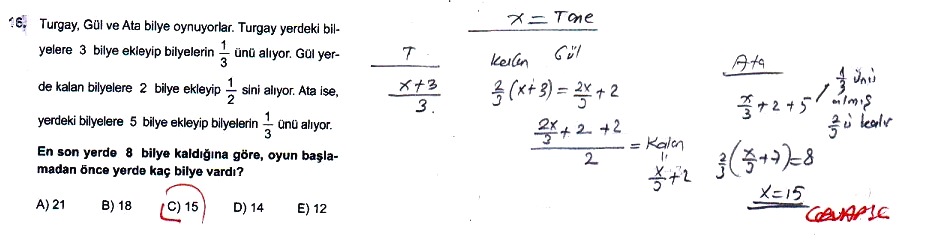 16. Turgay, Gül ve Ata bilye oynuyorlar. Turgay yerdeki bil-
yelere 3 bilye ekleyip bilyelerin 1/3 ünü alıyor. Gül yer-
de kalan bilyelere 2 bilye ekleyip 1/2 sini alıyor. Ata ise,
yerdeki bilyelere 5 bilye ekleyip bilyelerin 1/3 ünü alıyor.
En son yerde 8 bilye kaldığına göre, oyun başla-
madan önce yerde kaç bilye vardı?
A) 21 B) 18 C) 15 D) 14 E) 12
x = Tane
T
x+3
3
Kalan Gül
2/3 (x+3) = 2x/3 + 2
2x/3 + 2 + 2
2
= Kalan
x/3 + 2
Ata
x/3 + 2 + 5
1/3 ünü
almış
2/3 ü kalır
2/3 (x/3 + 7) = 8
x = 15
CEVAP C